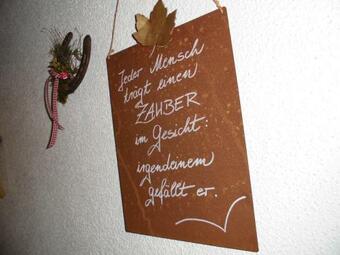 Jeder Mensch
trägt einen
ZAUBER
im Gesicht:
irgendeinem
gefällt er.